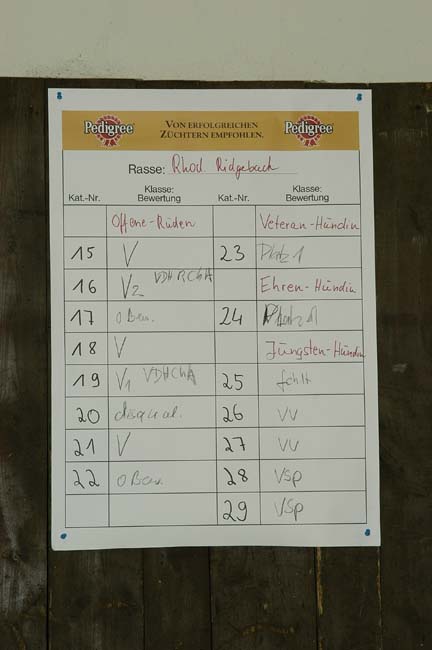 Pedigree VON ERFOLGREICHEN ZÜCHTERN EMPFOHLEN. Pedigree
Rasse: Rhod. Ridgeback
Kat.-Nr. Klasse: Bewertung Kat.-Nr. Klasse: Bewertung
Offene-Rüden Veteran-Hündin
15 V 23 Platz 1
16 V2 VDH RCHA Ehren-Hündin
17 o Bew. 24 Platz 1
18 V Jüngsten-Hündin
19 V1 VDHChA 25 fehlt
20 disqual. 26 vv
21 V 27 vv
22 o Bew. 28 vsp
29 vsp